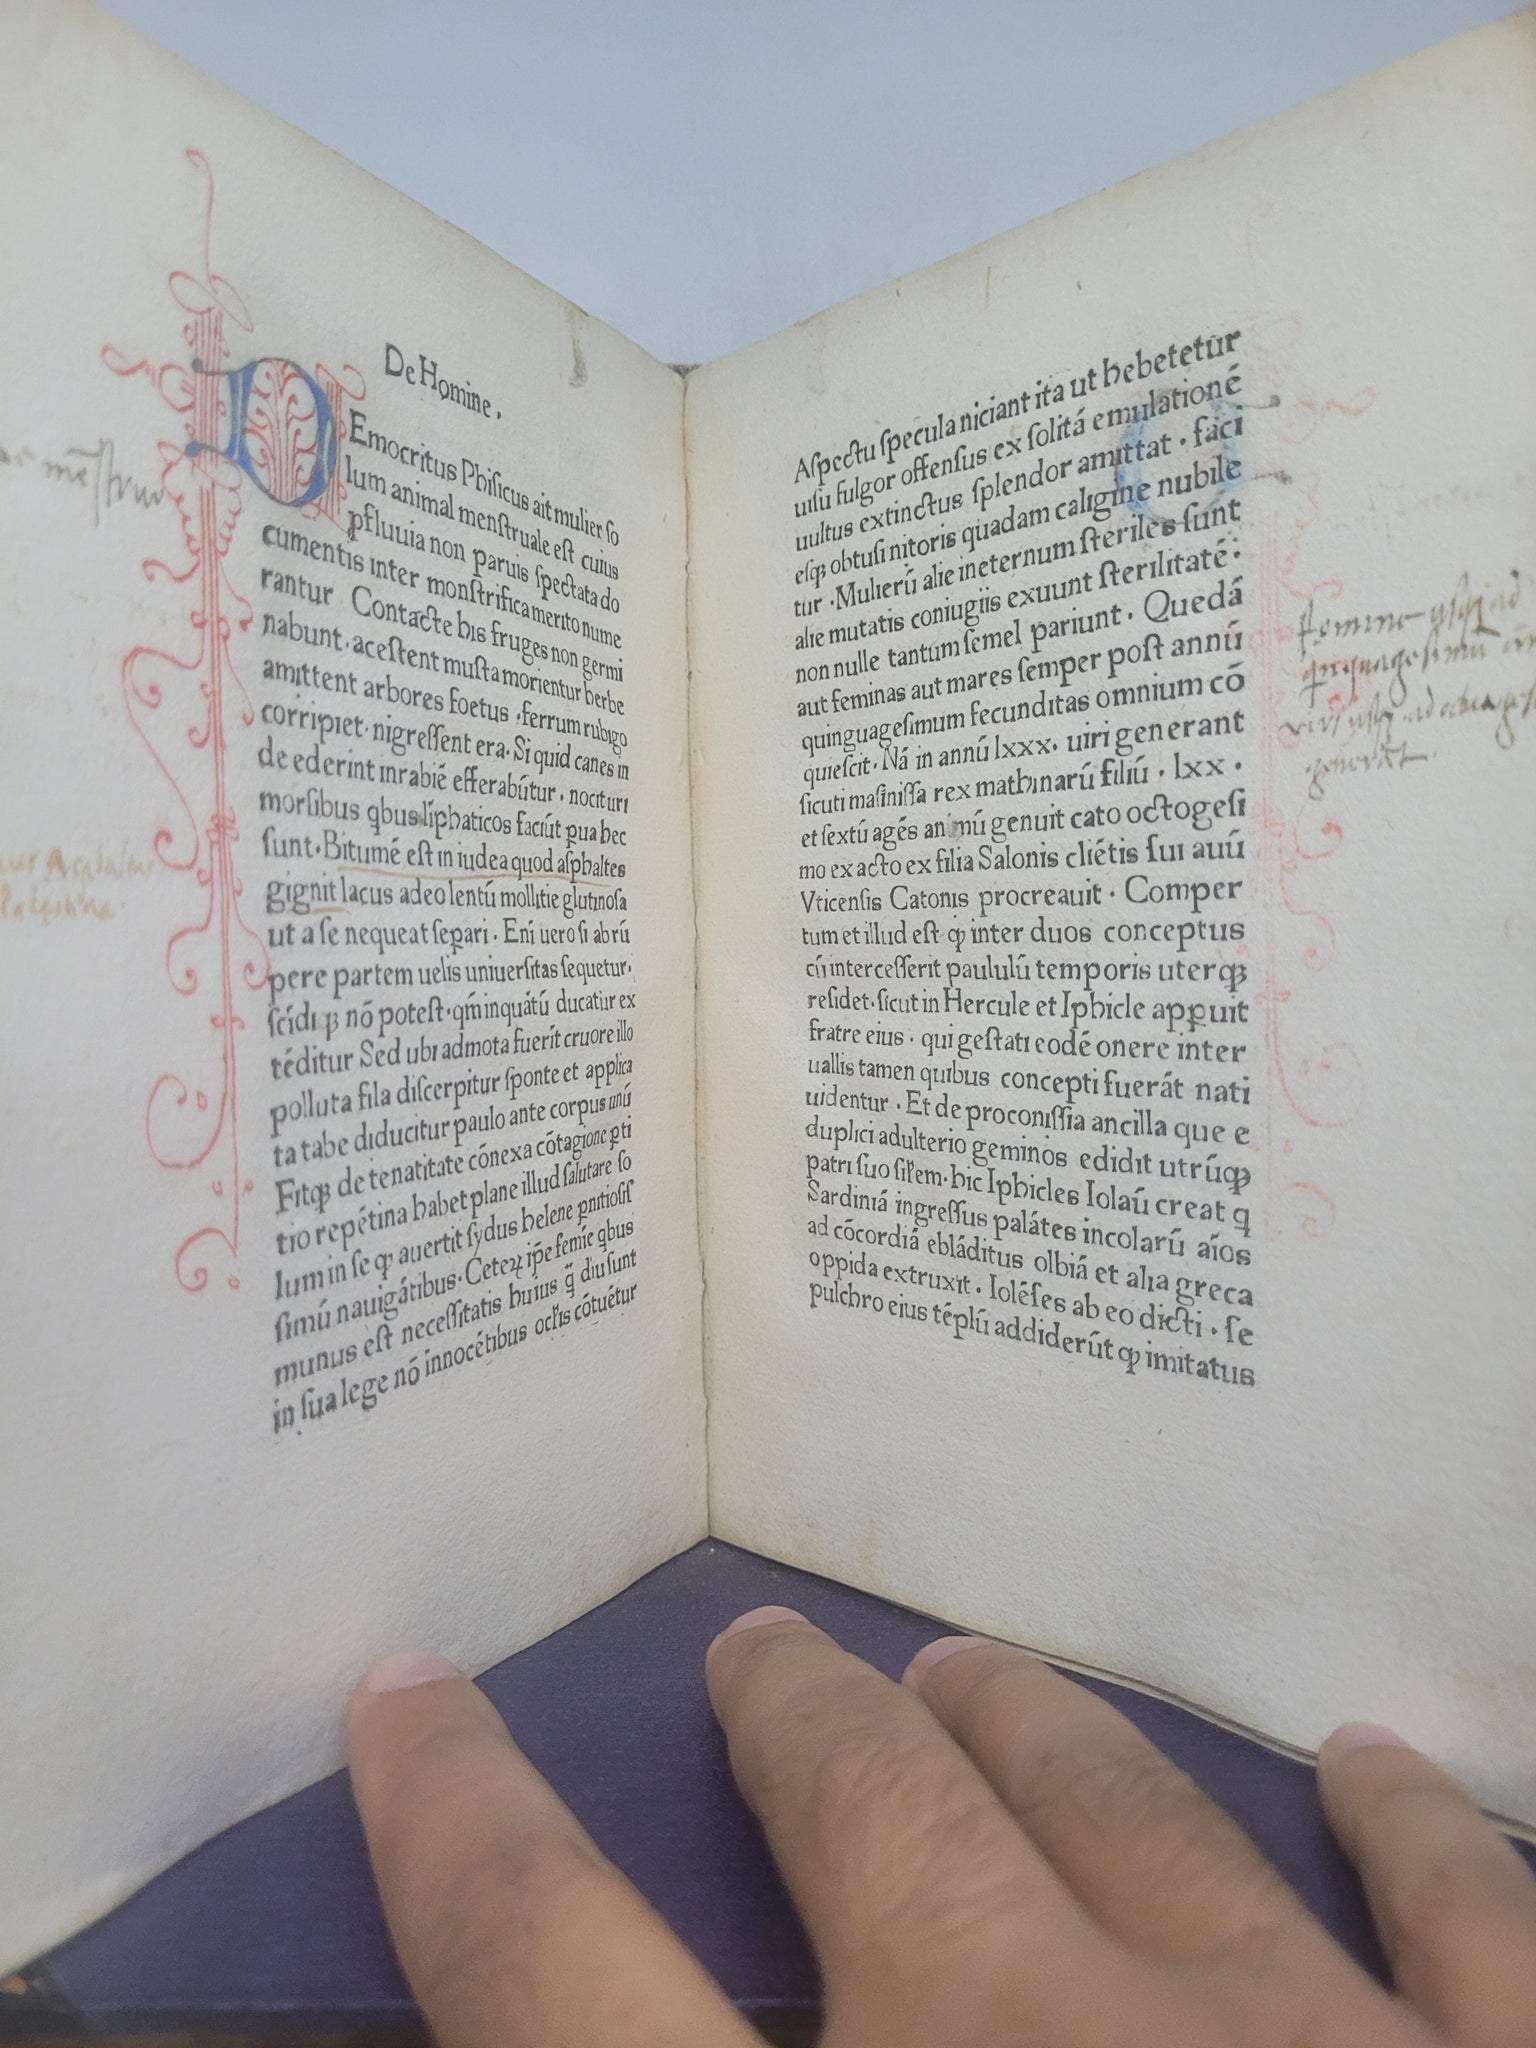 De Homine .
DEmocritus Phisicus ait mulier so
lum animal menstruale est cuius
ꝓfluuia non paruis spectata do
cumentis inter monstrifica merito nume
rantur Contacte his fruges non germi
nabunt . acescent musta morientur herbe
amittent arbores foetus . ferrum rubigo
corripiet . nigressent era . Si quid canes in
de ederint in rabié efferabútur . nocituri
morsibus qbus liphaticos faciút ꝑua hec
sunt . Bitumé est in iudea quod asphaltes
gignit lacus adeo lentú mollitie glutinosa
ut a se nequeat seꝑari . Eni uero si abrú
pere partem uelis uniuersitas sequetur .
scidiqꝫ nó potest . qm inquátú ducatur ex
téditur Sed ubi admota fuerít cruore illo
polluta fila discerpitur sponte et applica
ta tabe diducitur paulo ante corpus unú
Fitqꝫ de tenatitate cónexa cótagione ꝑti
tio repétina habet plane illud salutare so
lum in se ꝙ auertit sydus helene ꝑnitiosis
simú nauigátibus . Ceteꝝ iꝑe femíe qbus
munus est necessitatis huius q̈ diu sunt
in sua lege nó innocétibus oclis cótuétur
Aspectu specula niciant ita ut hebetetur
uisu fulgor offensus ex solitá emulationé
uultus extinctus splendor amittat . faci
esqꝫ obtusi nitoris quadam caligine nubile
tur . Mulierú alie ineternum steriles sunt
alie mutatis coniugiis exuunt sterilitaté :
non nulle tantum semel pariunt . Quedá
aut feminas aut mares semper post annú
quinguagesimum fecunditas omnium có
quiescit . Ná in annú lxxx . uiri generant
sicuti masinissa rex mathinarú filiú . lxx .
et sextú agés animú genuit cato octogesi
mo exacto ex filia Salonis cliétis sui auú
Vticensis Catonis procreauit . Comper
tum et illud est ꝙ inter duos conceptus
cú intercesserit paululú temporis uterqꝫ
residet . sicut in Hercule et Iphicle apꝑuit
fratre eius . qui gestati eodé onere inter
uallis tamen quibus concepti fuerát nati
uidentur . Et de proconissia ancilla que e
duplici adulterio geminos edidit utrúqꝫ
patri suo silem . hic Iphicles Iolaú creat q
Sardiniá ingressus palátes incolarú aíos
ad cócordiá ebláditus olbiá et alia greca
oppida extruxit . Ioléses ab eo dicti . se
pulchro eius téplú addiderút ꝙ imitatus
femine usqꝫ ad
quinquagesimum
viri usqꝫ ad octuages
generat .